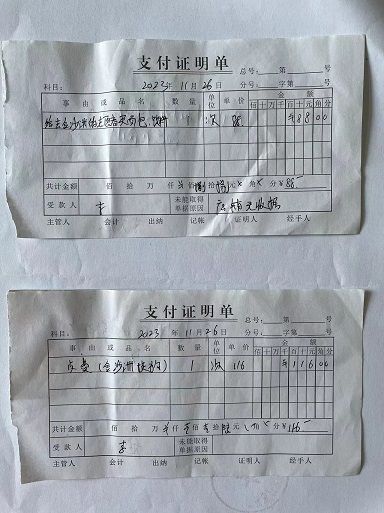 支付证明单
总号：第 号
科目： 2023年 11月 26日 分号：字第 号
事由或品名 数量 单位 单价 金额
佰十万千百十元角分
1 次 88 ¥8800
共计金额 佰 拾 万 仟 佰 捌拾捌元 角 分 ¥88-
受款人 李 未能取得单据原因 店铺无收据
主管人 会计 出纳 记帐 证明人 经手人
支付证明单
总号：第 号
科目： 2023年 11月 26日 分号：字第 号
事由或品名 数量 单位 单价 金额
佰十万千百十元角分
1 次 116 ¥11600
共计金额 佰 拾 万 仟 壹佰壹拾陆元 角 分 ¥116-
受款人 李 未能取得单据原因
主管人 会计 出纳 记帐 证明人 经手人